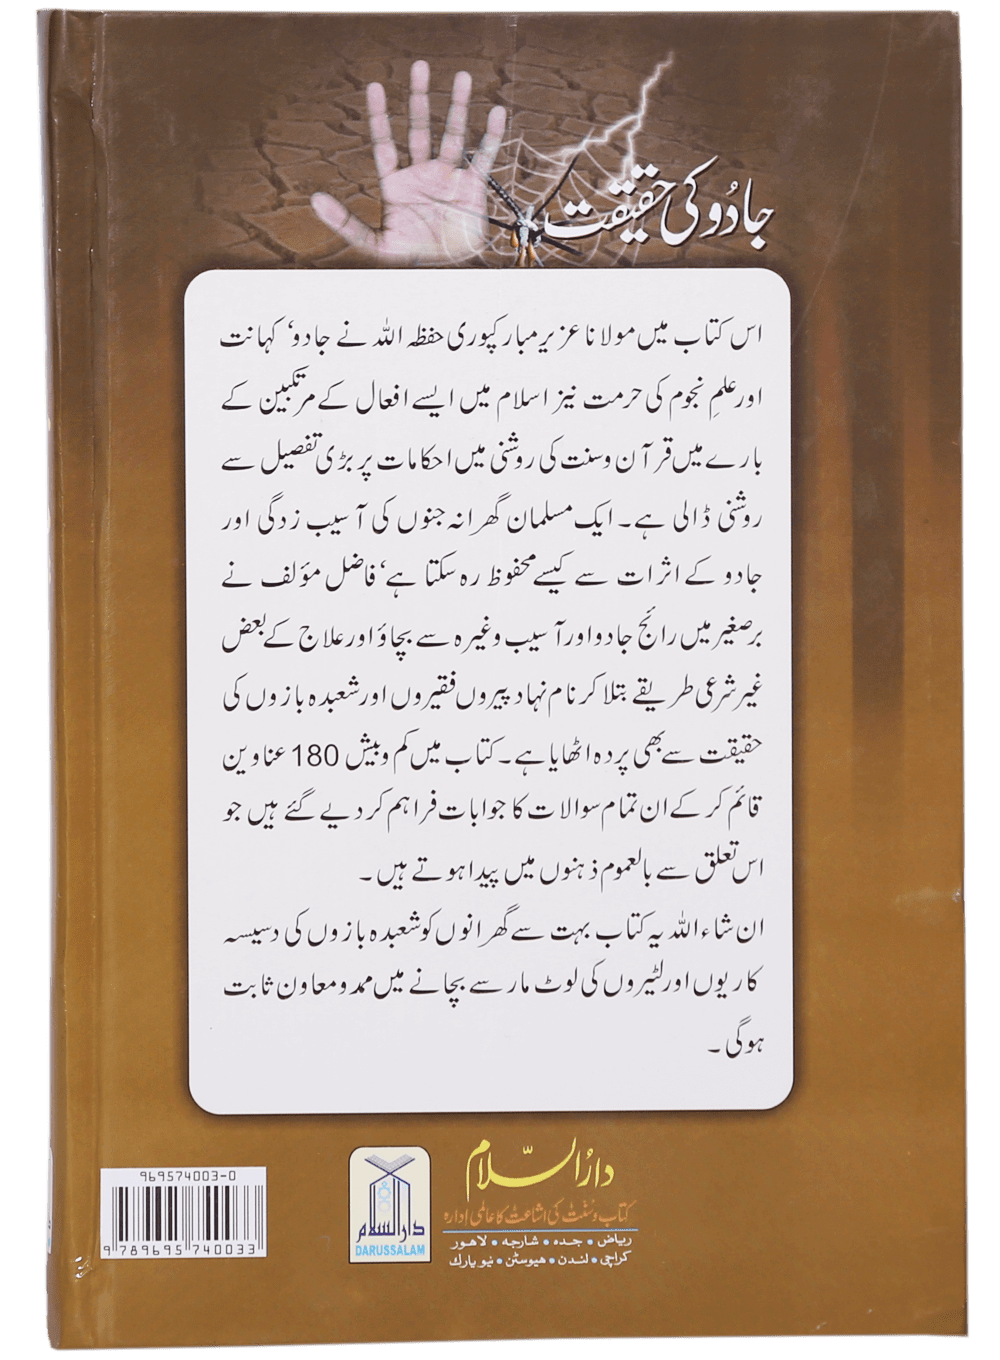 جادُو کی حقیقت
اس کتاب میں مولانا عزیر مبارکپوری حفظہ اللہ نے جادو، کہانت
اور علمِ نجوم کی حرمت نیز اسلام میں ایسے افعال کے مرتکبین کے
بارے میں قرآن وسنت کی روشنی میں احکامات پر بڑی تفصیل سے
روشنی ڈالی ہے۔ ایک مسلمان گھرانہ جنوں کی آسیب زدگی اور
جادو کے اثرات سے کیسے محفوظ رہ سکتا ہے، فاضل مؤلف نے
برصغیر میں رائج جادو اور آسیب وغیرہ سے بچاؤ اور علاج کے بعض
غیر شرعی طریقے بتلا کر نام نہاد پیروں فقیروں اور شعبدہ بازوں کی
حقیقت سے بھی پردہ اٹھایا ہے۔ کتاب میں کم وبیش 180 عناوین
قائم کرکے ان تمام سوالات کا جوابات فراہم کر دیے گئے ہیں جو
اس تعلق سے بالعموم ذہنوں میں پیدا ہوتے ہیں۔
ان شاء اللہ یہ کتاب بہت سے گھرانوں کو شعبدہ بازوں کی دسیسہ
کاریوں اور لٹیروں کی لوٹ مار سے بچانے میں ممد و معاون ثابت
ہوگی۔
دارُالسّلام
کتاب وسنت کی اشاعت کا عالمی ادارہ
ریاض • جدہ • شارجہ • لاهور
کراچی • لندن • هیوسٹن • نیویارك
دارالسلام
DARUSSALAM
969574003-0
9 789695 740033